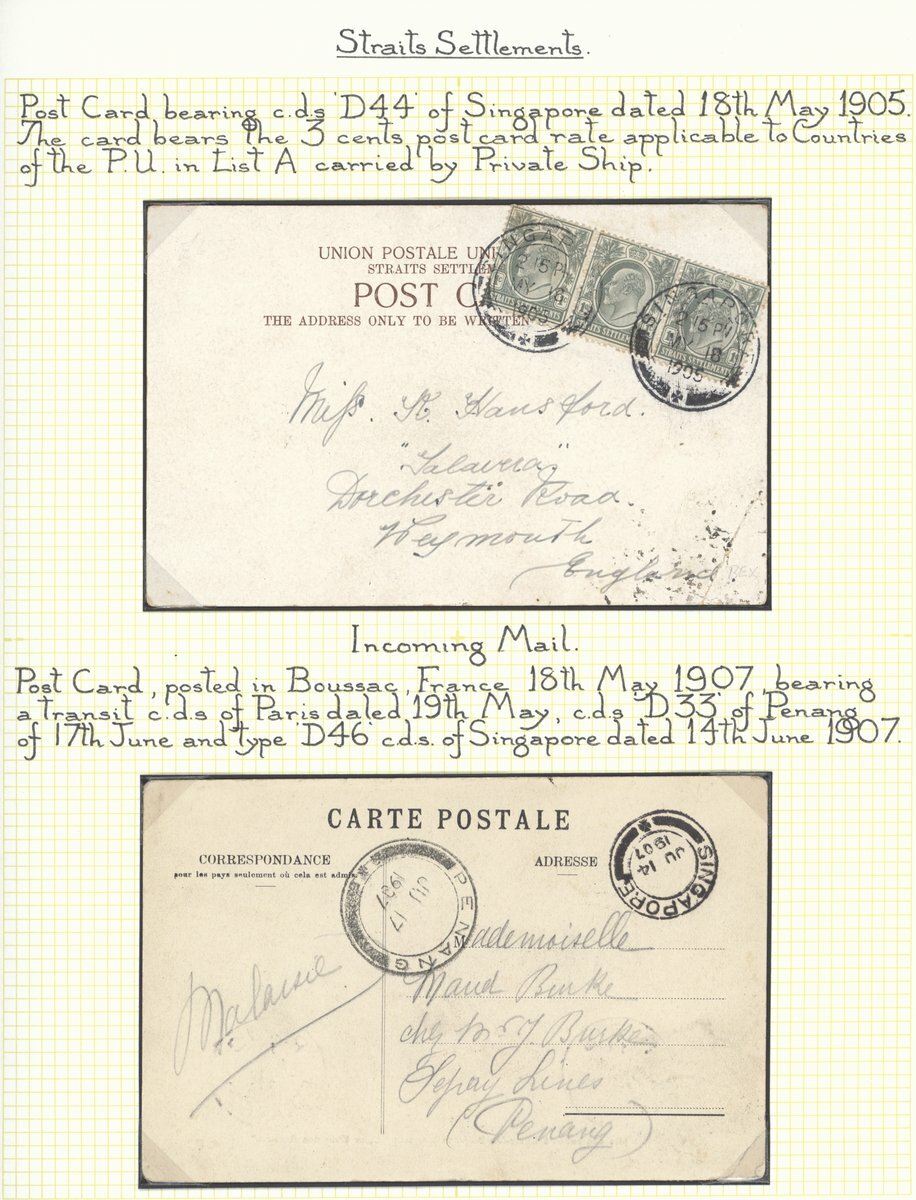 Straits Settlements.
Post Card, bearing c.d.s 'D44' of Singapore dated 18th May 1905.
The card bears the 3 cents post card rate applicable to Countries
of the P.U. in List A carried by Private Ship.
UNION POSTALE UNI
STRAITS SETTLEM
POST C
THE ADDRESS ONLY TO BE WRITTEN
SINGAP
2 15 PM
MY 18
1905
STRAITS SETTLEMENTS
STRAITS SETTLEM
STRAITS SETTLEMENTS
2 15 PM
MY 18
1905
Miss. K. Hansford.
"Talavera"
Dorchester Road.
Weymouth
England.
REX
Incoming Mail.
Post Card, posted in Boussac, France 18th May 1907, bearing
a transit c.d.s of Paris dated 19th May, c.d.s 'D33' of Penang
of 17th June and type 'D46' c.d.s. of Singapore dated 14th June 1907.
CARTE POSTALE
CORRESPONDANCE
pour les pays seulement où cela est admis
ADRESSE
PENANG
JU 17
1907
SINGAPORE
JU 14
1907
Mademoiselle
Maud Burke
chez Mr J Burke
Sepay Lines
(Penang)
Malaisie